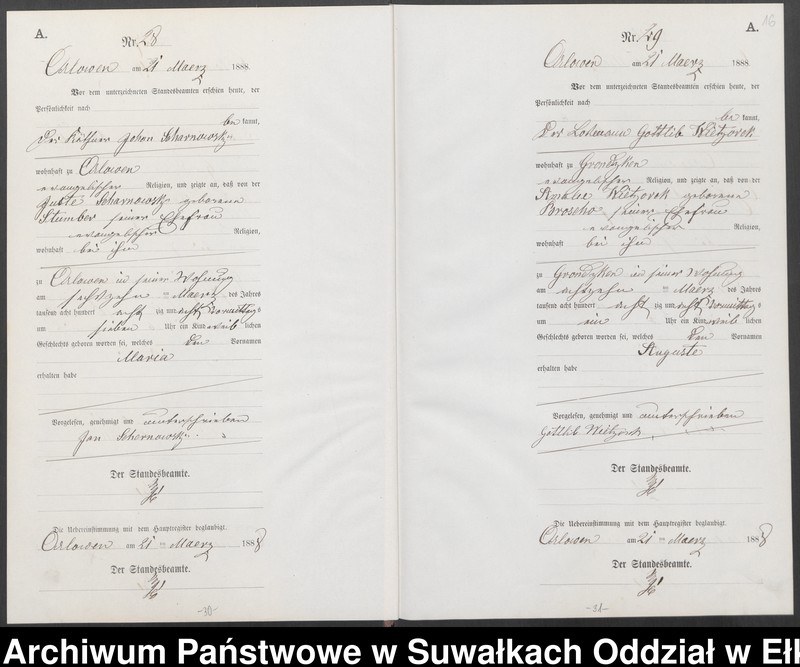 A.
Nr. 28
Orlowen am 21 Maerz 1888.
Vor dem unterzeichneten Standesbeamten erschien heute, der
Persönlichkeit nach
be kannt,
Der Käthner Johan Scharnowski
wohnhaft zu Orlowen
evangelischer Religion, und zeigte an, daß von der
Juste Scharnowski geborene
Stumber seiner Ehefrau
evangelischer Religion,
wohnhaft bei ihm
zu Orlowen in seiner Wohnung
am sechszehn ten Maerz des Jahres
tausend acht hundert acht zig und acht Vormittag s
um sieben Uhr ein Kind weib lichen
Geschlechts geboren worden sei, welches den Vornamen
Maria
erhalten habe
Vorgelesen, genehmigt und unterschrieben
Jan Scharnowski
Der Standesbeamte.
Die Uebereinstimmung mit dem Hauptregister beglaubigt.
Orlowen am 21 ten Maerz 1888
Der Standesbeamte.
-30-
16
A.
Nr. 29
Orlowen am 21 Maerz 1888.
Vor dem unterzeichneten Standesbeamten erschien heute, der
Persönlichkeit nach
be kannt,
Der Losmann Gottlieb Wietzorek
wohnhaft zu Grondzken
evangelischer Religion, und zeigte an, daß von der
Amalie Wietzorek geborene
seiner Ehefrau
evangelischer Religion,
wohnhaft bei ihm
zu Grondzken in seiner Wohnung
am achtzehn ten Maerz des Jahres
tausend acht hundert acht zig und acht Vormittag s
um ein Uhr ein Kind weib lichen
Geschlechts geboren worden sei, welches den Vornamen
Auguste
erhalten habe
Vorgelesen, genehmigt und unterschrieben
Gottlib Wietzorek
Der Standesbeamte.
Die Uebereinstimmung mit dem Hauptregister beglaubigt.
Orlowen am 21 ten Maerz 1888
Der Standesbeamte.
-31-
Archiwum Państwowe w Suwałkach Oddział w Eł